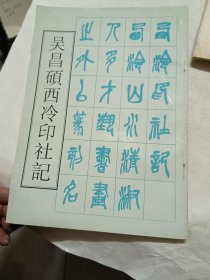 吴昌碩西泠印社記
西泠印社記
西泠山水清淑
人多才藝書畫
之外以篆刻名